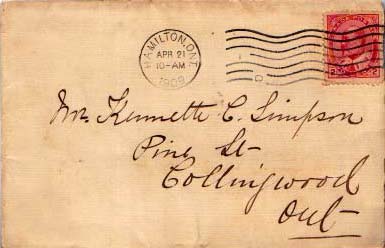 HAMILTON, ONT.
APR 21
10-AM
1909
D
Mr. Kennette C. Simpson
Pine St
Collingwood
Ont